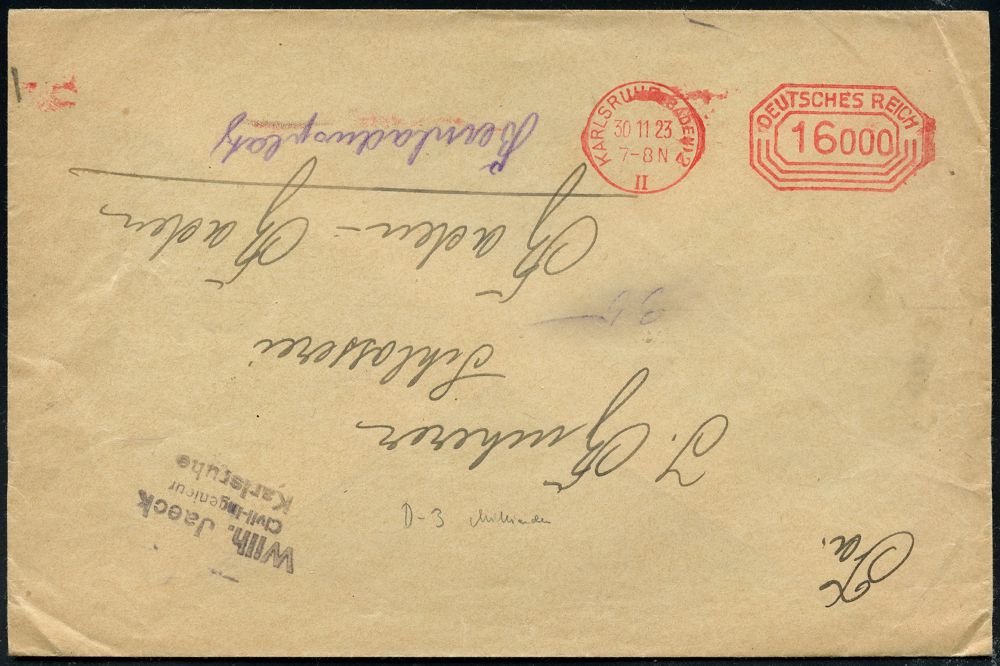 DEUTSCHES REICH
16000
KARLSRUHE (BADEN) 2
30 11 23
7-8 N
II
Wilh. Jaeck
Civil-Ingenieur
Karlsruhe
Fa.
J. Bucherer
Schlosserei
Baden-Baden
Bernhardusplatz
D-3 Milliarden